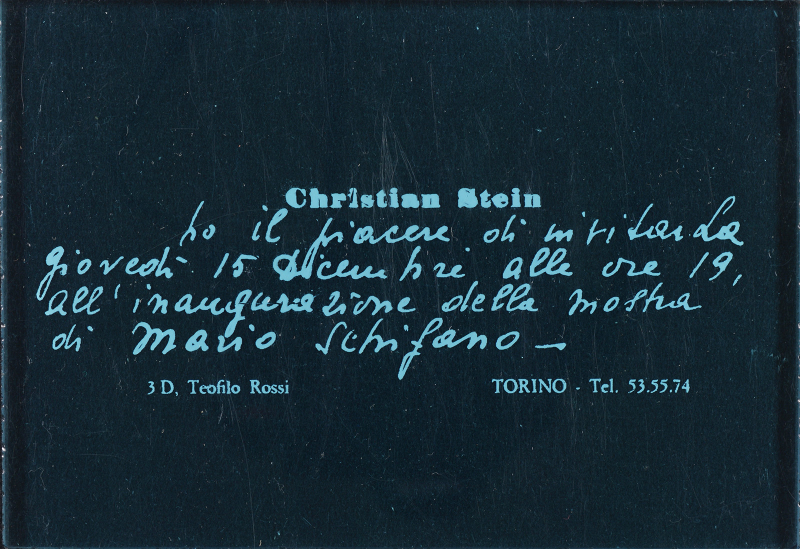 Christian Stein
ho il piacere di invitarLa
giovedì 15 dicembre alle ore 19,
all'inaugurazione della mostra
di Mario Schifano —
3 D, Teofilo Rossi TORINO - Tel. 53.55.74